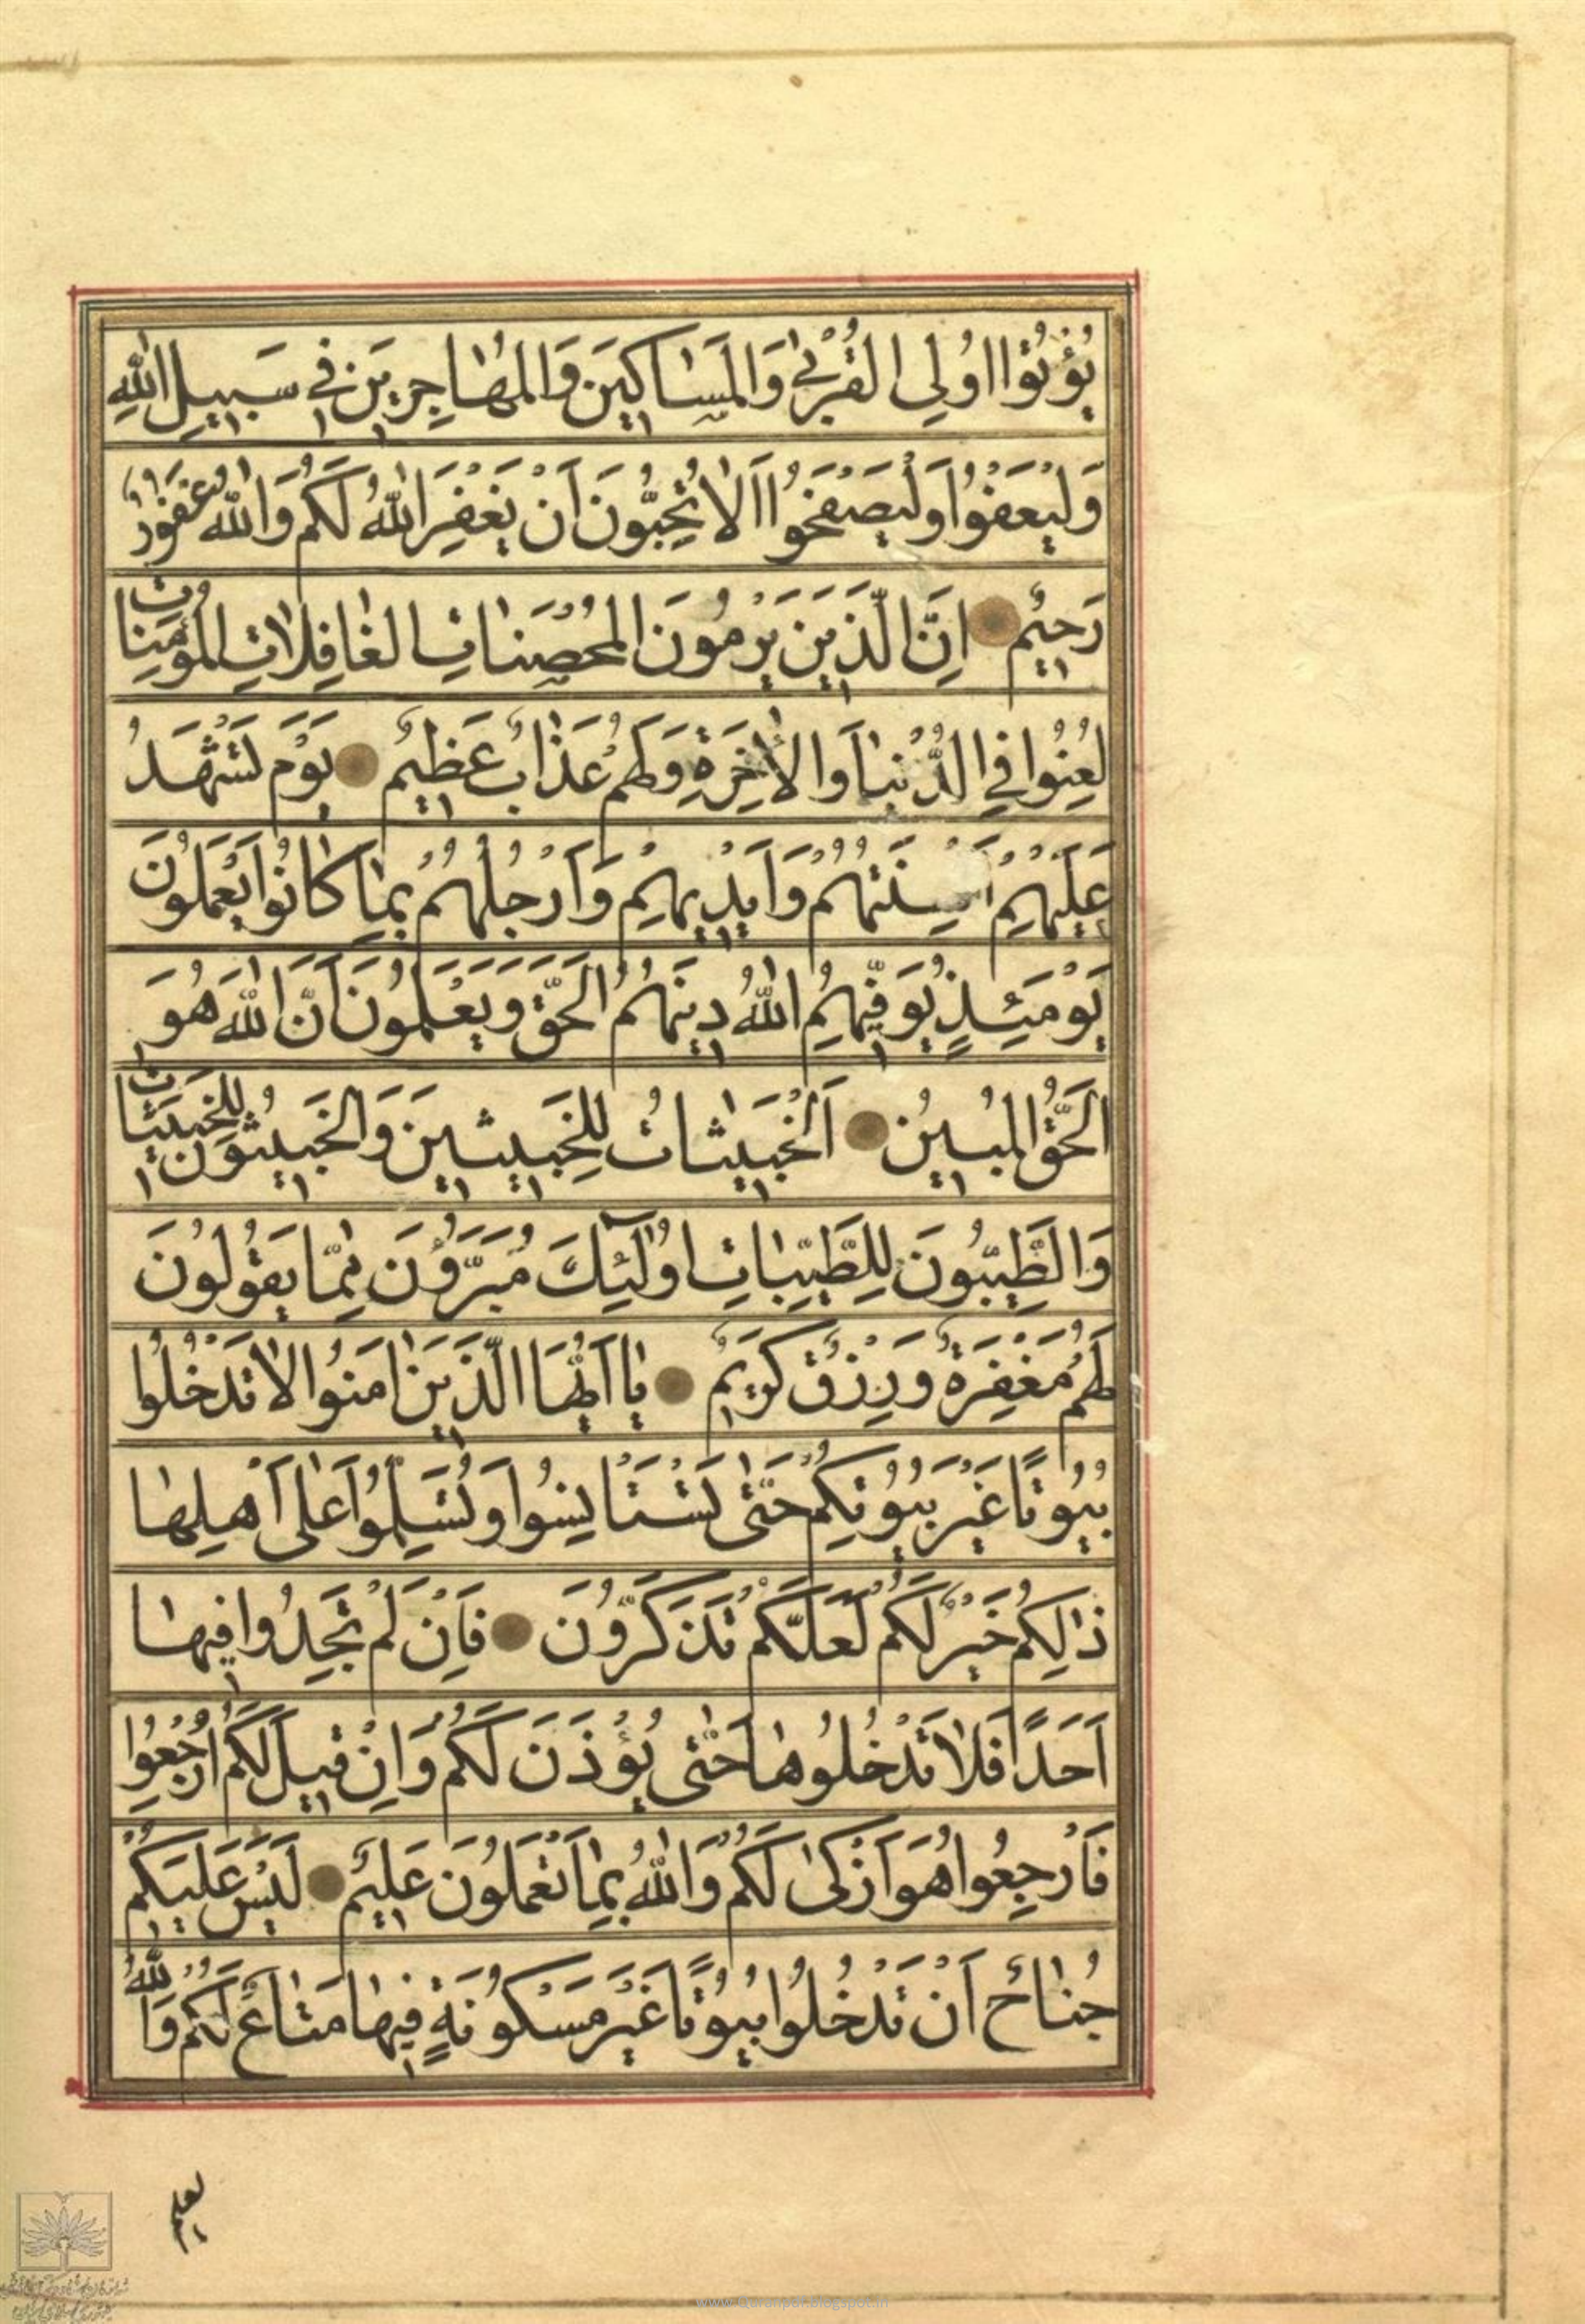 يُؤْتُوا اُولِي الْقُرْبٰى وَالْمَسٰاكِينَ وَالْمُهٰاجِرِينَ فِي سَبِيلِ اللّٰهِ
وَلْيَعْفُوا وَلْيَصْفَحُوا اَلٰا تُحِبُّونَ اَنْ يَغْفِرَ اللّٰهُ لَكُمْ وَاللّٰهُ غَفُورٌ
رَحِيمٌ اِنَّ الَّذِينَ يَرْمُونَ الْمُحْصَنٰاتِ الْغٰافِلٰاتِ الْمُؤْمِنٰاتِ
لُعِنُوا فِي الدُّنْيٰا وَالْاٰخِرَةِ وَلَهُمْ عَذٰابٌ عَظِيمٌ يَوْمَ تَشْهَدُ
عَلَيْهِمْ اَلْسِنَتُهُمْ وَاَيْدِيهِمْ وَاَرْجُلُهُمْ بِمٰا كٰانُوا يَعْمَلُونَ
يَوْمَئِذٍ يُوَفِّيهِمُ اللّٰهُ دِينَهُمُ الْحَقَّ وَيَعْلَمُونَ اَنَّ اللّٰهَ هُوَ
الْحَقُّ الْمُبِينُ اَلْخَبِيثٰاتُ لِلْخَبِيثِينَ وَالْخَبِيثُونَ لِلْخَبِيثٰاتِ
وَالطَّيِّبُونَ لِلطَّيِّبٰاتِ اُولٰٓئِكَ مُبَرَّؤُنَ مِمّٰا يَقُولُونَ
لَهُمْ مَغْفِرَةٌ وَرِزْقٌ كَرِيمٌ يٰا اَيُّهَا الَّذِينَ اٰمَنُوا لٰا تَدْخُلُوا
بُيُوتًا غَيْرَ بُيُوتِكُمْ حَتّٰى تَسْتَاْنِسُوا وَتُسَلِّمُوا عَلٰى اَهْلِهٰا
ذٰلِكُمْ خَيْرٌ لَكُمْ لَعَلَّكُمْ تَذَكَّرُونَ فَاِنْ لَمْ تَجِدُوا فِيهٰا
اَحَدًا فَلٰا تَدْخُلُوهٰا حَتّٰى يُؤْذَنَ لَكُمْ وَاِنْ قِيلَ لَكُمُ ارْجِعُوا
فَارْجِعُوا هُوَ اَزْكٰى لَكُمْ وَاللّٰهُ بِمٰا تَعْمَلُونَ عَلِيمٌ لَيْسَ عَلَيْكُمْ
جُنٰاحٌ اَنْ تَدْخُلُوا بُيُوتًا غَيْرَ مَسْكُونَةٍ فِيهٰا مَتٰاعٌ لَكُمْ وَاللّٰهُ
www.quranpdf.blogspot.in